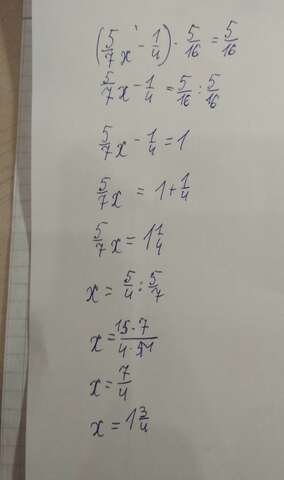 (5/7 x - 1/4) · 5/16 = 5/16
5/7 x - 1/4 = 5/16 : 5/16
5/7 x - 1/4 = 1
5/7 x = 1 + 1/4
5/7 x = 1 1/4
x = 5/4 : 5/7
x = 15·7/4·51
x = 7/4
x = 1 3/4